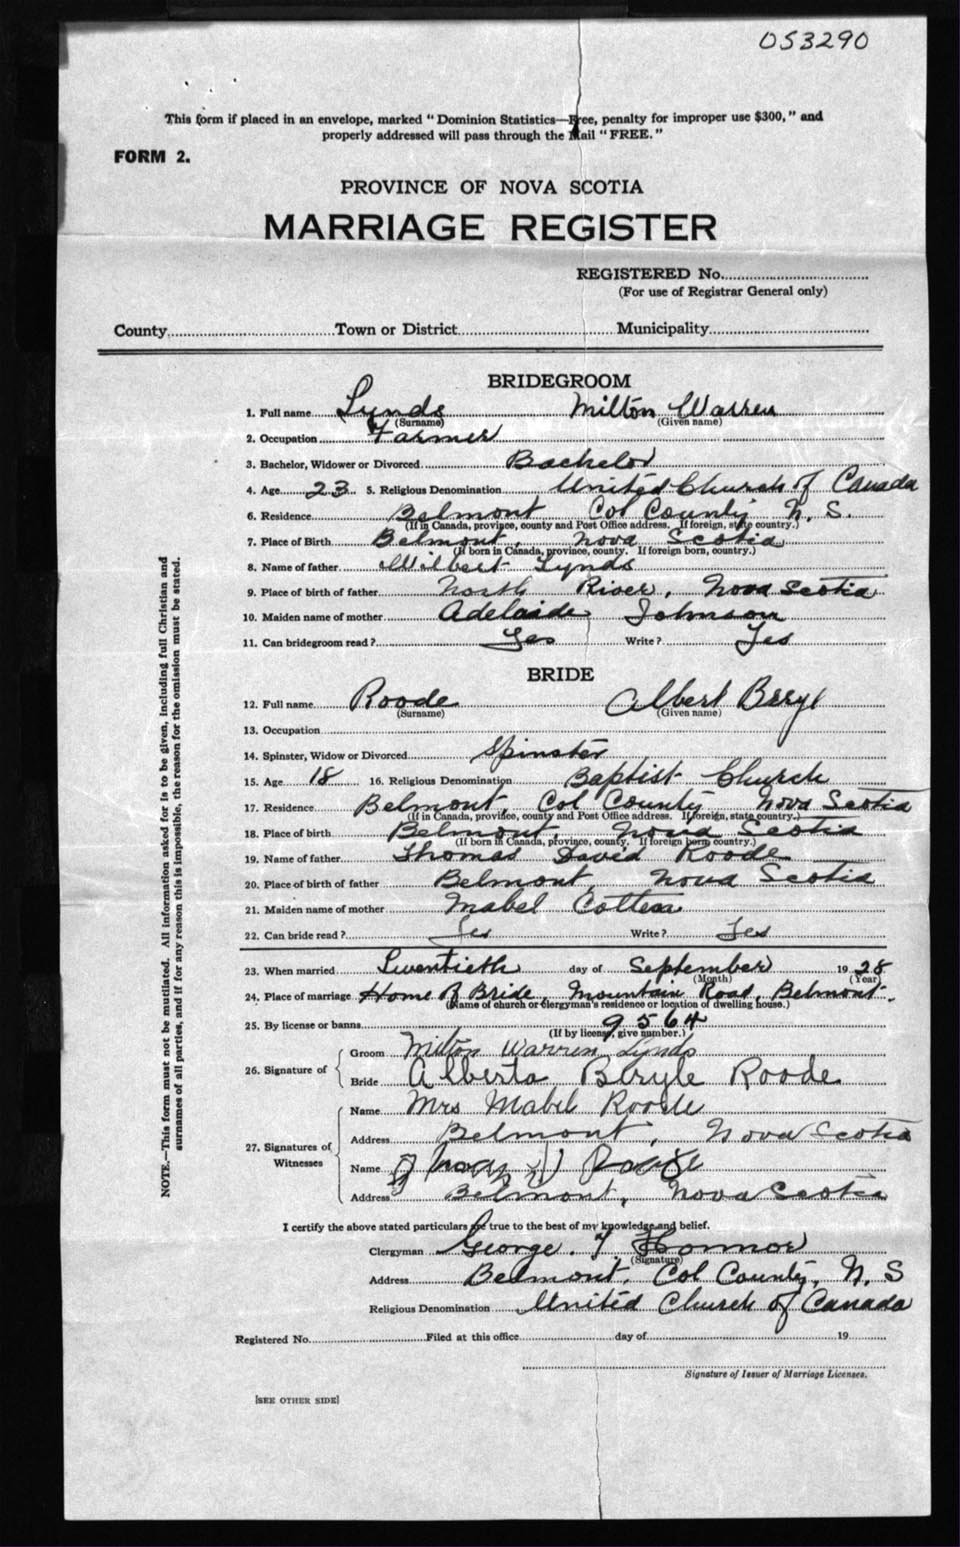 053290
This form if placed in an envelope, marked "Dominion Statistics—Free, penalty for improper use $300," and
properly addressed will pass through the Mail "FREE."
FORM 2.
PROVINCE OF NOVA SCOTIA
MARRIAGE REGISTER
REGISTERED No.
(For use of Registrar General only)
County Town or District Municipality
BRIDEGROOM
1. Full name Lynds Milton Warren
(Surname) (Given name)
2. Occupation Farmer
3. Bachelor, Widower or Divorced Bachelor
4. Age 23 5. Religious Denomination United Church of Canada
6. Residence Belmont Col County N. S.
(If in Canada, province, county and Post Office address. If foreign, state country.)
7. Place of Birth Belmont, Nova Scotia
(If born in Canada, province, county. If foreign born, country.)
8. Name of father Wilbert Lynds
9. Place of birth of father North River, Nova Scotia
10. Maiden name of mother Adelaide Johnson
11. Can bridegroom read? Yes Write? Yes
BRIDE
12. Full name Roode Albert Beryl
(Surname) (Given name)
13. Occupation
14. Spinster, Widow or Divorced Spinster
15. Age 18 16. Religious Denomination Baptist Church
17. Residence Belmont, Col County Nova Scotia
(If in Canada, province, county and Post Office address. If foreign, state country.)
18. Place of birth Belmont, Nova Scotia
(If born in Canada, province, county. If foreign born, country.)
19. Name of father Thomas David Roode
20. Place of birth of father Belmont, Nova Scotia
21. Maiden name of mother Mabel
22. Can bride read? Yes Write? Yes
23. When married Twentieth day of September 1928
(Month) (Year)
24. Place of marriage Home of Bride, Mountain Road, Belmont.
(Name of church or clergyman's residence or location of dwelling house.)
25. By license or banns 9564
(If by license, give number.)
26. Signature of
Groom Milton Warren Lynds
Bride Alberta Beryle Roode
27. Signatures of
Witnesses
Name Mrs Mabel Roode
Address Belmont, Nova Scotia
Name
Address Belmont, Nova Scotia
I certify the above stated particulars are true to the best of my knowledge and belief.
Clergyman George. 
(Signature)
Address Belmont, Col County, N. S
Religious Denomination United Church of Canada
Registered No. Filed at this office day of 19
Signature of Issuer of Marriage Licenses.
[SEE OTHER SIDE]
NOTE.—This form must not be mutilated. All information asked for is to be given, including full Christian and
surnames of all parties, and if for any reason this is impossible, the reason for the omission must be stated.